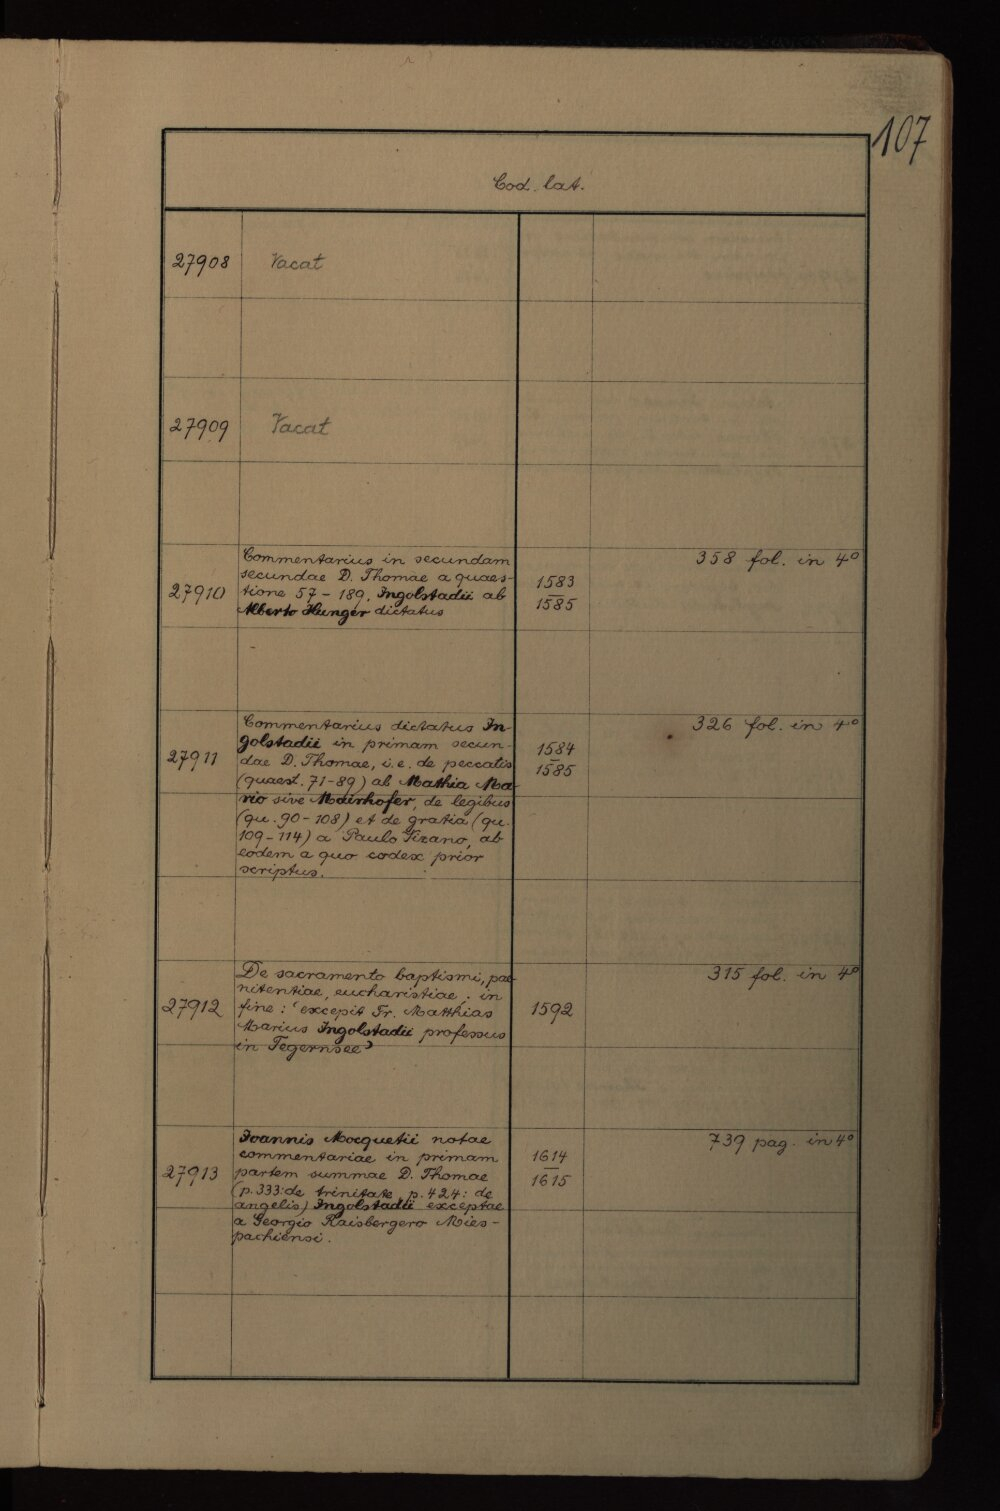 107
Cod. lat.
27908 Vacat
27909 Vacat
Commentarius in secundam
secundae D. Thomae a quaes-
tione 57 - 189, Ingolstadii ab
Alberto Hunger dictatus
27910
1583
-
1585
358 fol. in 4º
Commentarius dictatus In-
golstadii in primam secun-
dae D. Thomae, i. e. de peccatis
(quaest. 71-89) ab Mathia Ma-
rio sive Mairhofer, de legibus
(qu. 90-108) et de gratia (qu.
109-114) a Paulo Vizano, ab
eodem a quo codex prior
scriptus.
27911
1584
-
1585
326 fol. in 4º
De sacramento baptismi, pae-
nitentiae, eucharistiae; in
fine: 'excepit Fr. Matthias
Marius Ingolstadii professus
in Tegernsee'
27912
1592
315 fol. in 4º
Ioannis Mocquetii notae
commentariae in primam
partem summae D. Thomae
(p. 333: de trinitate, p. 424: de
angelis) Ingolstadii exceptae
a Georgio Kaisbergero Mies-
pachiensi.
27913
1614
-
1615
739 pag. in 4º